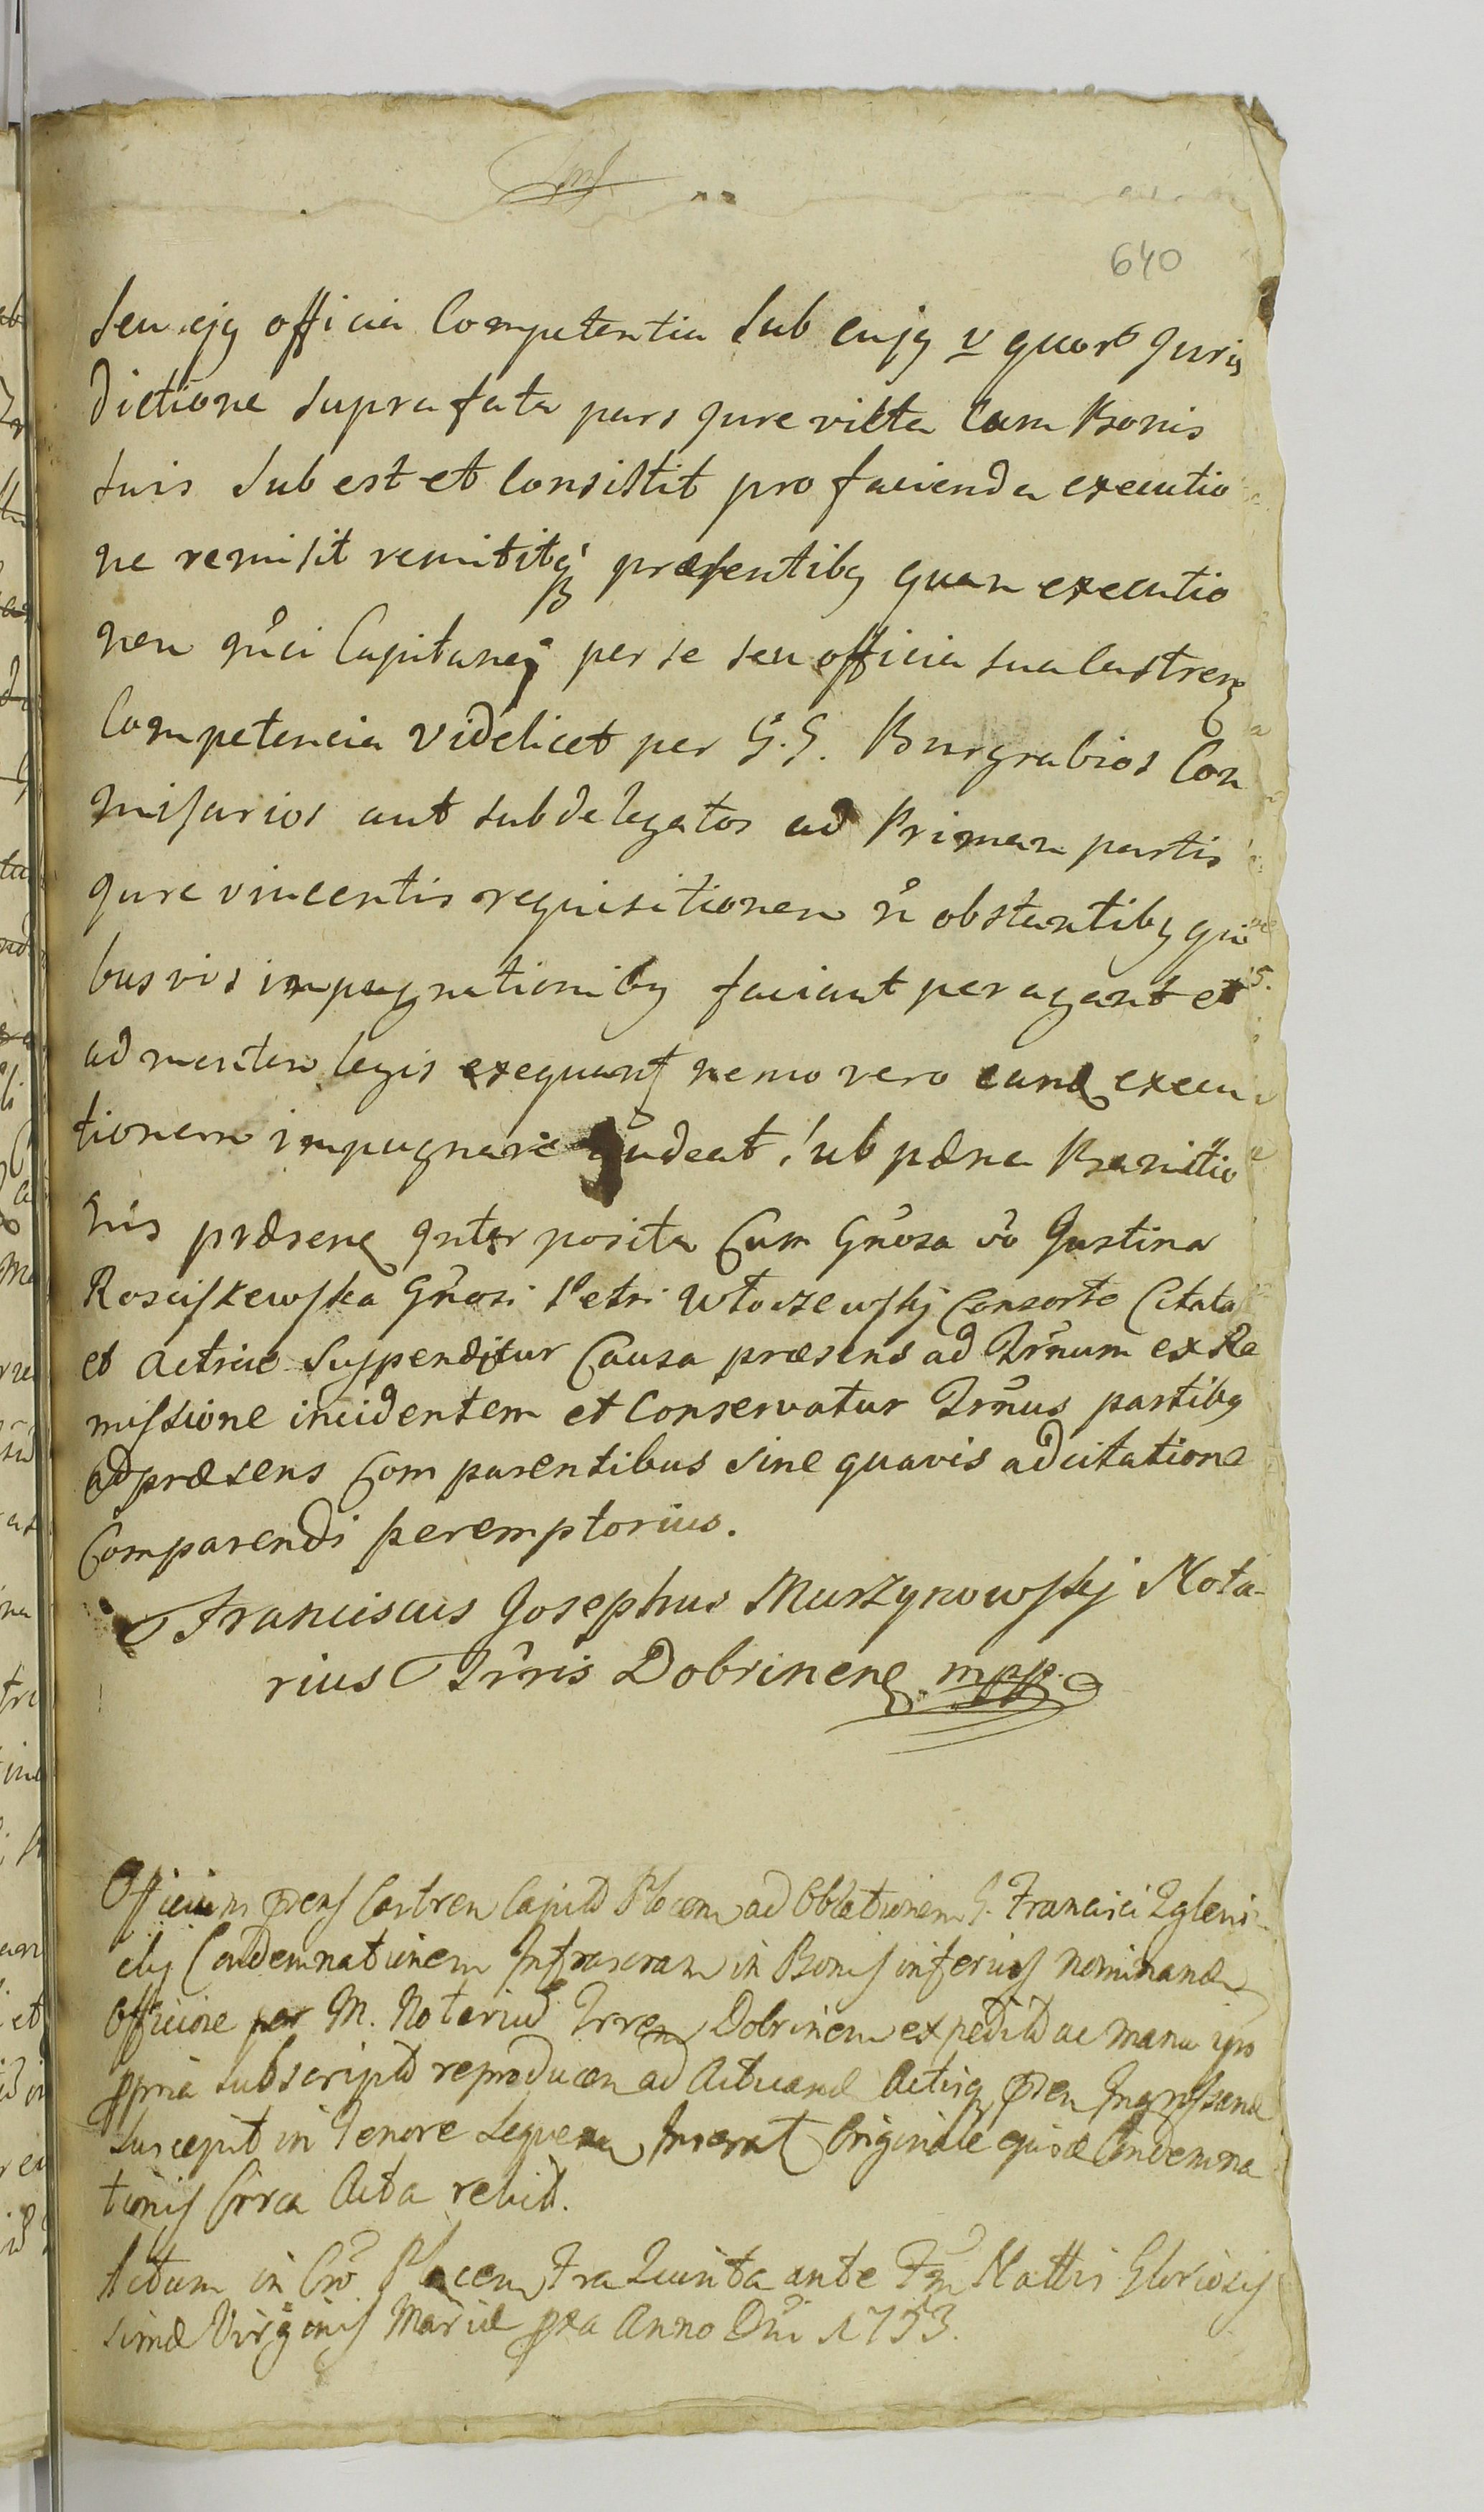 640
seu ejq officia Competentia sub cujq v quor Juris
dictione supra fata pars Jure victa Cum Bonis
suis subest et Consistit pro facienda executio
ne remisit remititq præsentibq quam executio
nem Capitanej per se seu officia sua Castren
Competencia videlicet per G.G. Burgrabios Com
misarios aut subdelegatos ad Primam partis
Jure vincentis requisitionem n obstantibq qui
busvis impugnationibq faciant peragant et
ad mentem legis exequant nemo vero eand execu
tionem impugnare audeat sub pæna Banitio
nis præsen Inter posita Cum Gnosa Justina
Rosciszewska Gnosi Petri Wtoczewskj Consorte Citata
et Actrice Suspenditur Causa præsens ad Trnum ex Re
missione incidentem et Conservatur Trnus partibq
ad præsens Comparentibus sine quavis adcitatione
Comparendi peremptorius.
Franciscus Josephus Murzynowskj Nota-
rius Trris Dobrinen mpp.
Officium pens Castren Capitt Plocen ad Oblationem G. Francisci Zgleni
Condemnationem Infrascram in Bonis inferius nominand
Officiose per M. Notariu Trren Dobrinen expedit ac manu ipo
ppria subscript reproducen ad Acticand Actisq pden Ingrossand
Suscepit in Tenore sequen Inserat Originale ejusd Condemna
tionis Circa Acta relict.
Actum in Cro Plocen Fria Quinta ante Fm Nattis Gloriosis
simæ Virginis Mariæ pxa Anno Dni 1753.